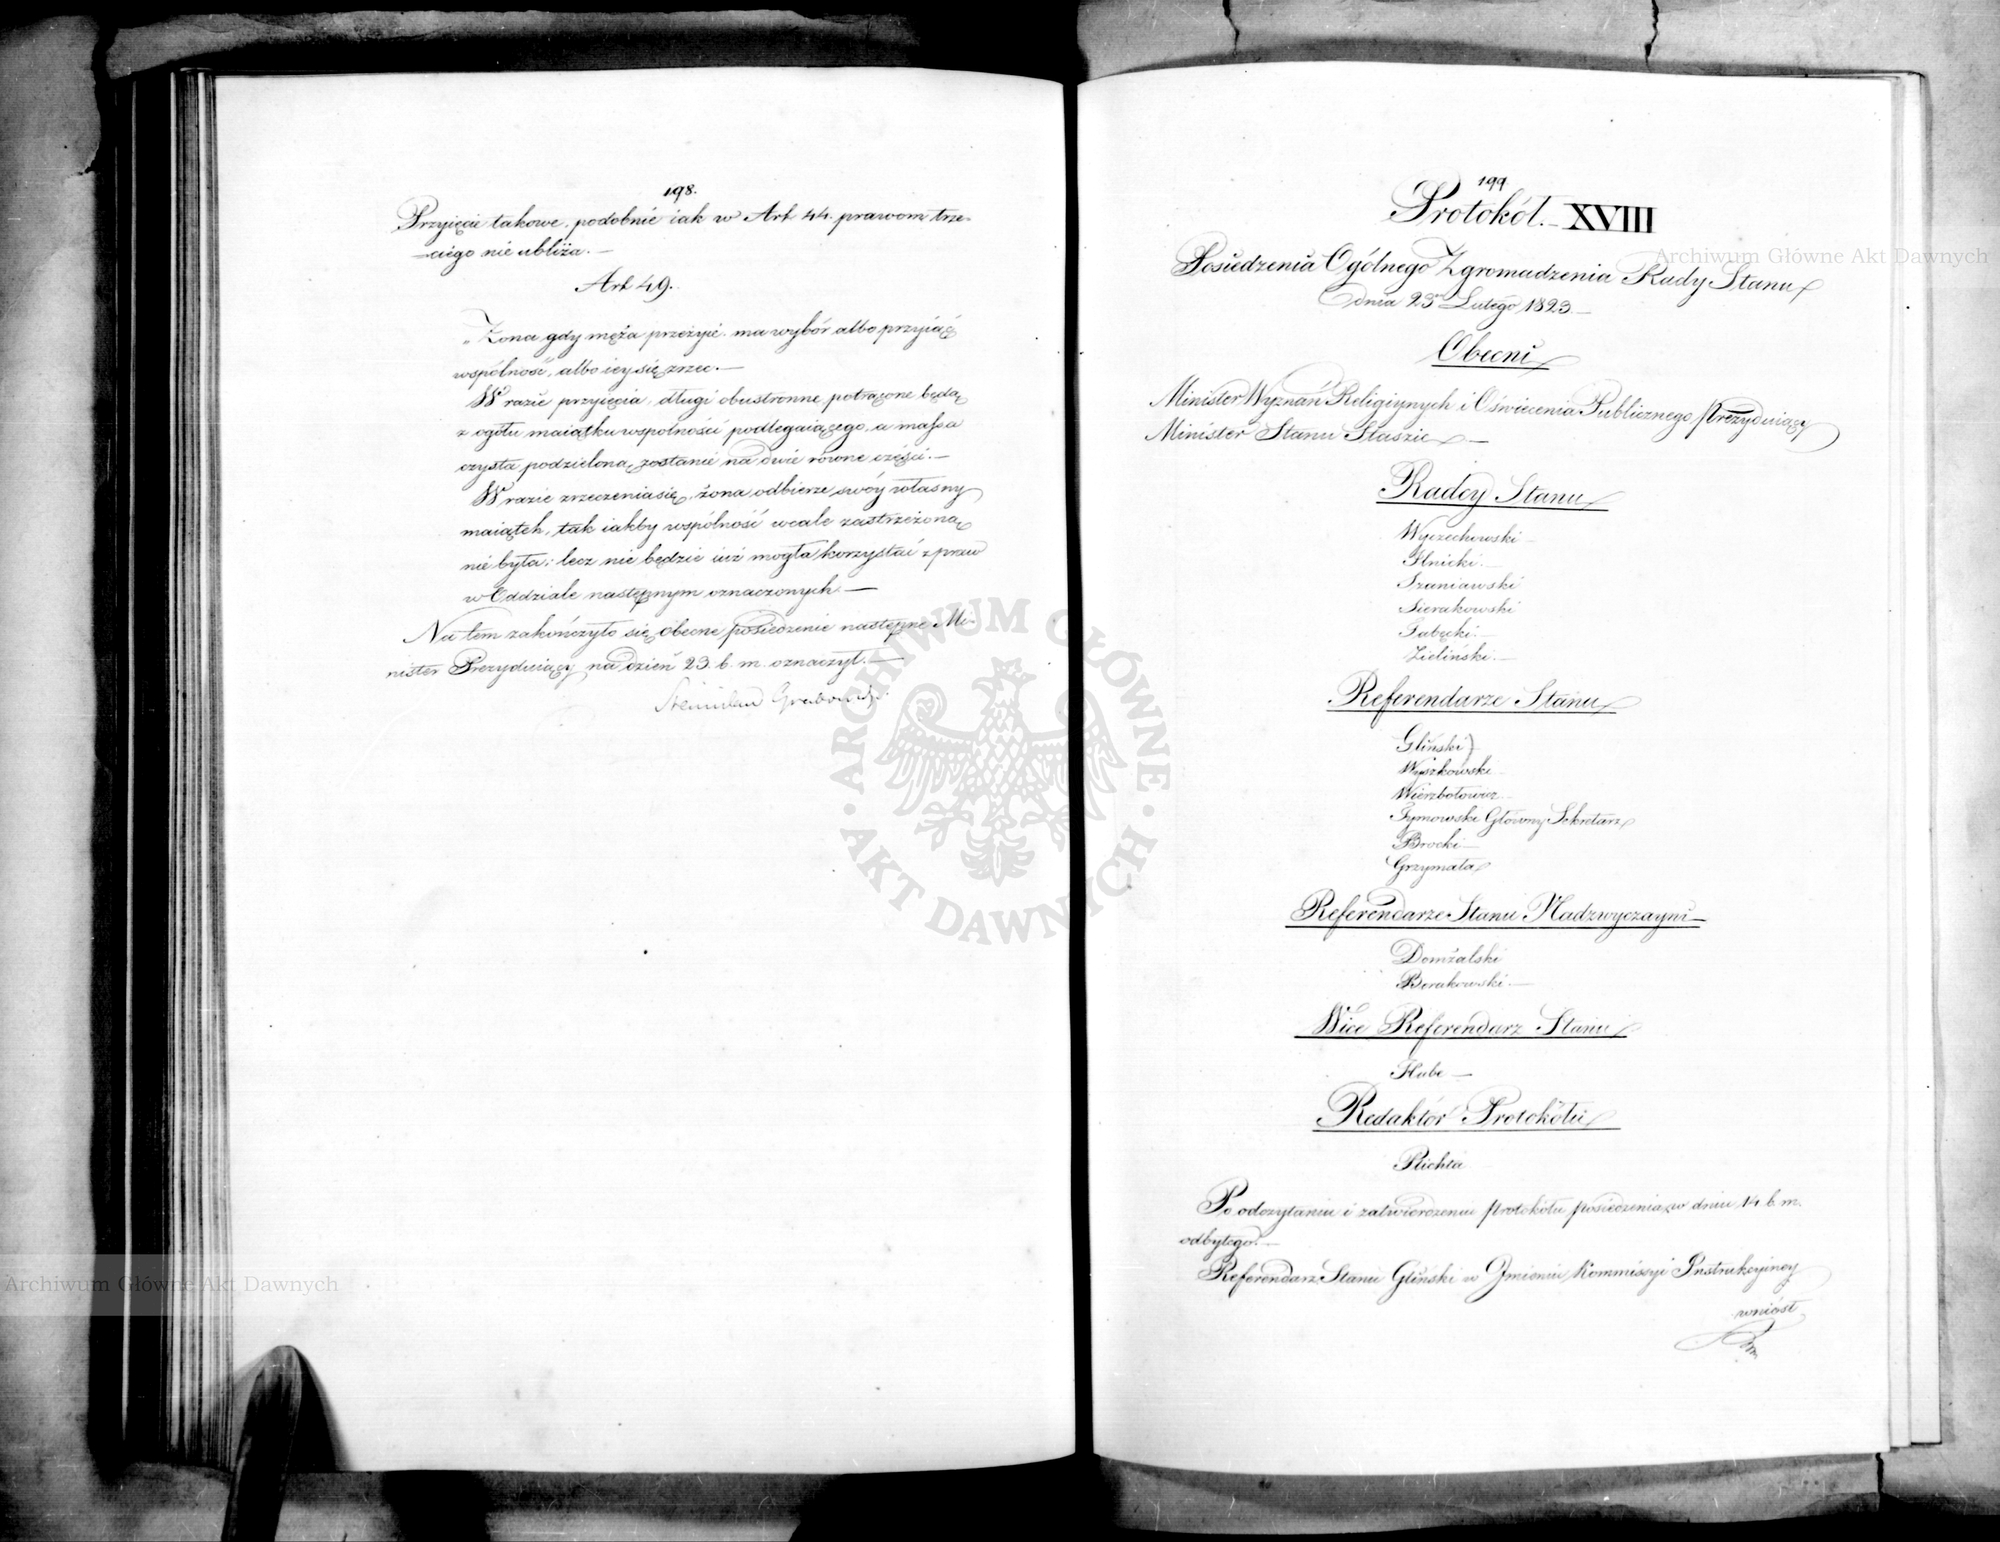 198.
Przyięcie takowe, podobnie iak w Art 44. prawom trze-
-ciego nie ubliża.—
Art 49.
„Żona gdy męża przeżyie. ma wybór albo przyiąć
wspólność, albo iey się zrzec.—
W razie przyięcia, długi obustronne potrącone będą
z ogółu maiątku wspólności podlegaiącego, a massa
czysta podzielona, zostanie na dwie równe części.—
W razie zrzeczenia się, żona odbierze swóy własny
maiątek, tak iakby wspólność wcale zastrzeżoną
nie była; lecz nie będzie iuż mogła korzystać z praw
w Oddziale następnym oznaczonych.—
Na tem zakończyło się obecne posiedzenie następne Mi-
nister Prezyduiący na dzień 23. b. m. oznaczył.—
Stanisław Grabowski.
199
Protokół.— XVIII
Posiedzenia Ogólnego Zgromadzenia Rady Stanu
dnia 23 Lutego 1823.—
Obecni
Minister Wyznań Religiynych i Oświecenia Publicznego, Prezyduiący
Minister Stanu Staszic—
Radcy Stanu
Wyczechowski—
Ilnicki.—
Szaniawski
Sierakowski
Zieliński.—
Referendarze Stanu
Gliński
Wyszkowski—
Wierzbołowicz—
Tymowski Główny Sekretarz
Brocki—
Grzymała
Referendarze Stanu Nadzwyczayni—
Domżalski
Borakowski.—
Wice Referendarz Stanu
Hube—
Redaktór Protokółu
Plichta
Po odczytaniu i zatwierdzeniu protokółu posiedzenia, w dniu 14. b. m.
odbytego.—
Referendarz Stanu Gliński w Imieniu Kommissyi Instrukcyiney
wniósł
Archiwum Główne Akt Dawnych
Archiwum Główne Akt Dawnych
ARCHIWUM GŁÓWNE
AKT DAWNYCH